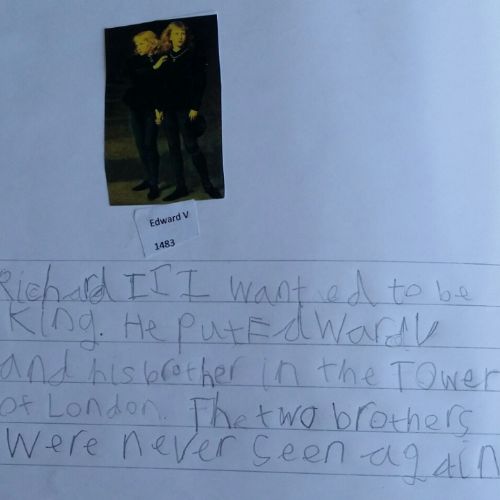 Edward V
1483
Richard III wanted to be
King. He put Edward V
and his brother in the Tower
of London. The two brothers
were never seen again